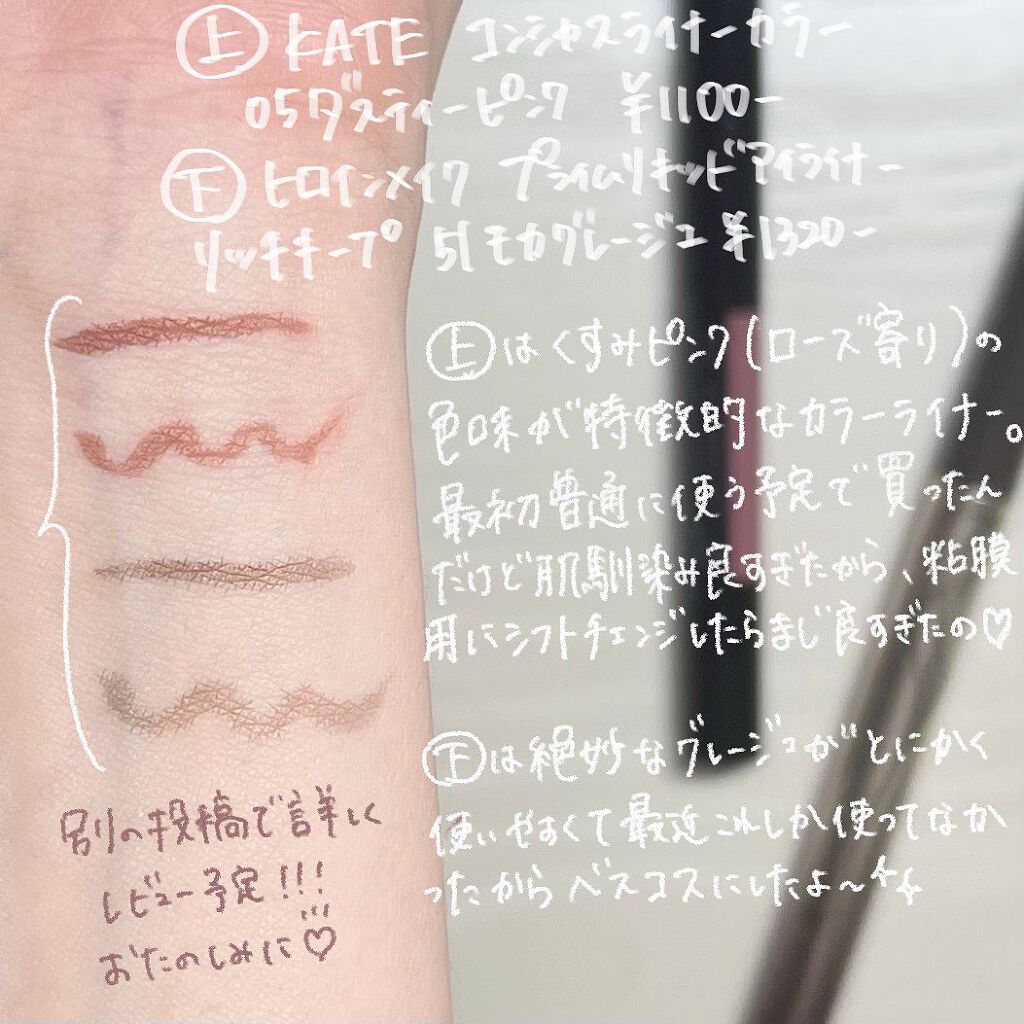 上 KATE コンシャスライナーカラー
05ダスティーピンク ¥1100-
下 ヒロインメイク プライムリキッドアイライナー
リッチキープ 51モカグレージュ ¥1320-
上はくすみピンク(ローズ寄り)の
色味が特徴的なカラーライナー。
最初普通に使う予定で買ったん
だけど肌馴染み良すぎたから、粘膜
用にシフトチェンジしたらまじ良すぎたの♡
下は絶妙なグレージュがとにかく
使いやすくて最近これしか使ってなか
ったからベスコスにしたよ〜
別の投稿で詳しく
レビュー予定!!!
おたのしみに♡